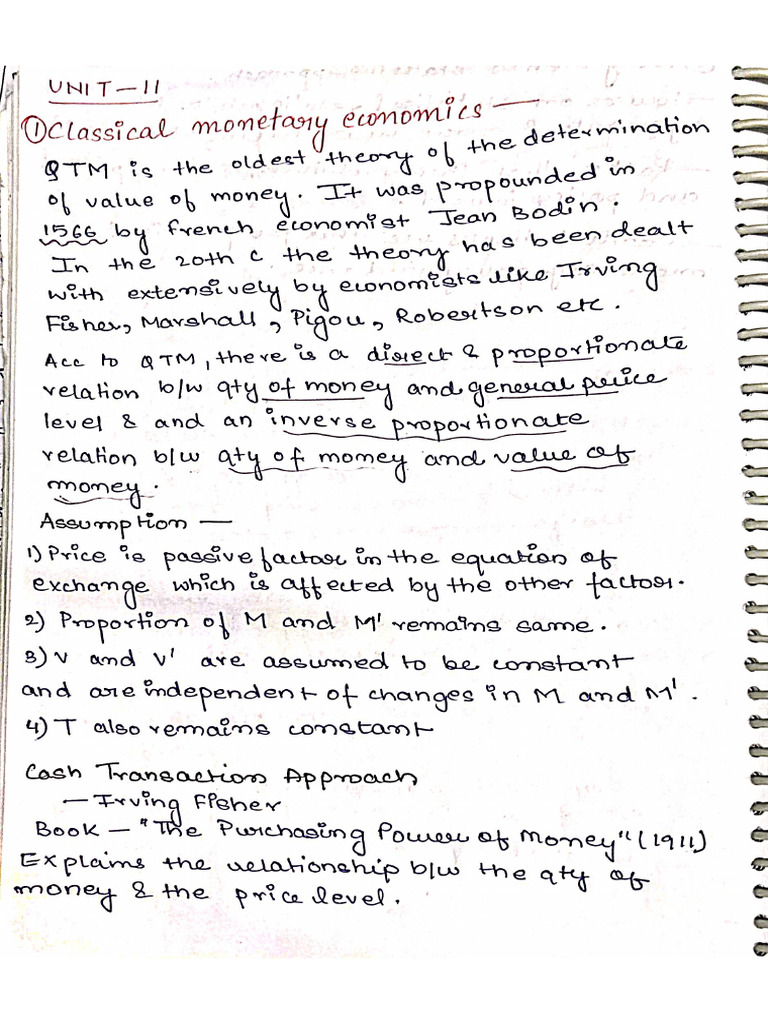 UNIT-II
① Classical monetary economics —
QTM is the oldest theory of the determination
of value of money. It was propounded in
1566 by french economist Jean Bodin.
In the 20th c the theory has been dealt
with extensively by economists like Irving
Fisher, Marshall, Pigou, Robertson etc.
Acc to QTM, there is a direct & proportionate
relation b/w qty of money and general price
level & and an inverse proportionate
relation b/w qty of money and value of
money.
Assumption —
1) Price is passive factor in the equation of
exchange which is affected by the other factor.
2) Proportion of M and M' remains same.
3) V and V' are assumed to be constant
and are independent of changes in M and M'.
4) T also remains constant
Cash Transaction Approach
— Irving Fisher
Book — "The Purchasing Power of Money" (1911)
Explains the relationship b/w the qty of
money & the price level.